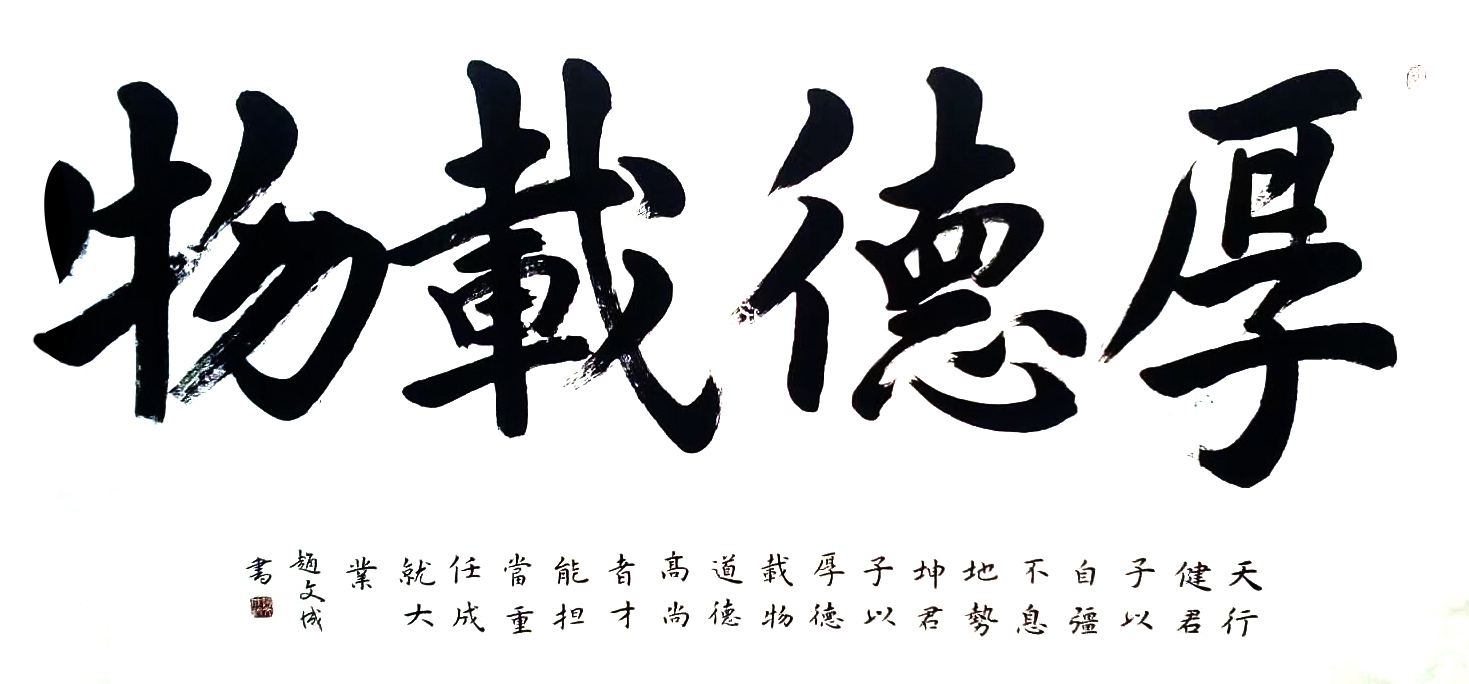 厚德載物
天行
健君
子以
自彊
不息
地勢
坤君
子以
厚德
載物
道德
髙尚
者才
能担
當重
任成
就大
業
趙文成
書